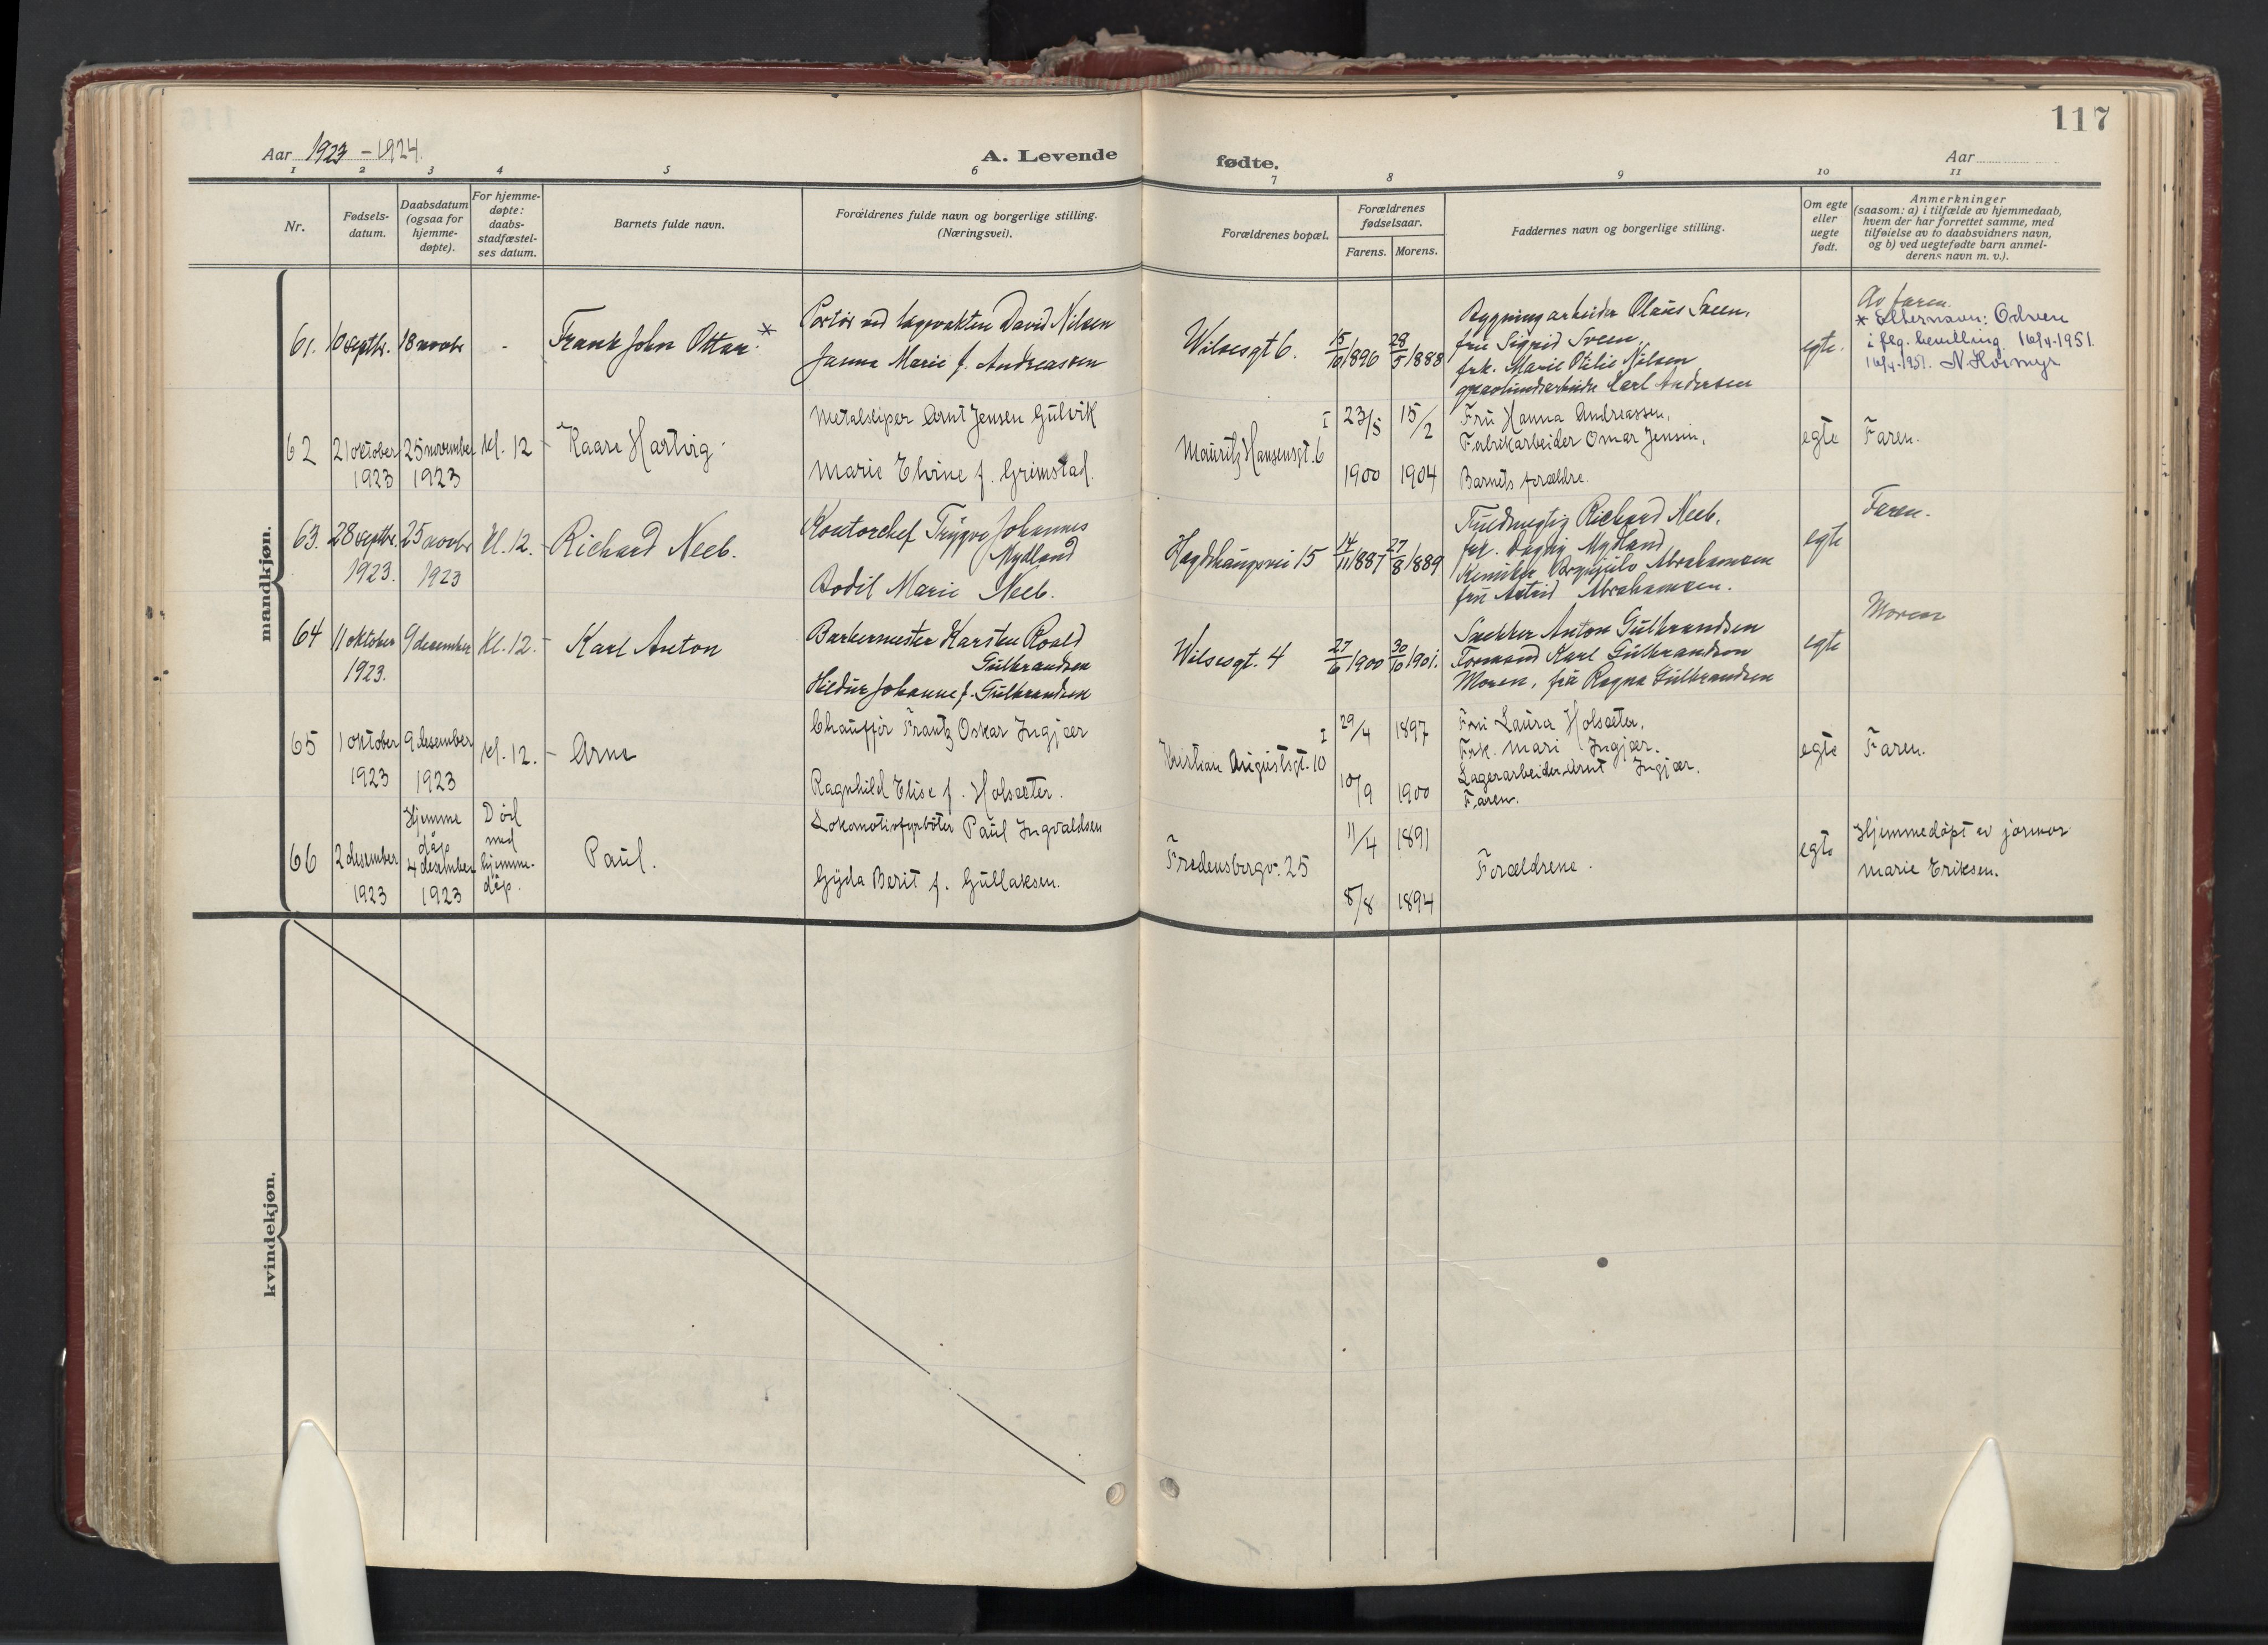 117
Aar 1923 - 1924.
A. Levende fødte.
Aar
1 2 3 4 5 6 7 8 9 10 11
Nr.
Fødsels-
datum.
Daabsdatum
(ogsaa for
hjemme-
døpte).
For hjemme-
døpte:
daabs-
stadfæstel-
ses datum.
Barnets fulde navn.
Forældrenes fulde navn og borgerlige stilling.
(Næringsvei).
Forældrenes bopæl.
Forældrenes
fødselsaar.
Farens. Morens.
Faddernes navn og borgerlige stilling.
Om egte
eller
uegte
født.
Anmerkninger
(saasom: a) i tilfælde av hjemmedaab,
hvem der har forrettet samme, med
tilføielse av to daabsvidners navn,
og b) ved uegtefødte barn anmel-
derens navn m. v.).
mandkjøn.
61.
10 septbr.
18 novbr
-
Frank John Ottar. *
Portør ved lægevakten David Nilsen
Janna Marie f. Andreassen
Wilsesgt 6.
15/10 1896
28/5 1888
Bygningsarbeider Olaus Sveen,
fru Sigrid Sveen,
frk. Marie Otilie Nilsen
gravlundsarbeider Carl Andersen
egte.
Av faren.
* Etternavn: Odveen
i flg. bevilling 16/4-1951.
16/4-1951. N. Hovmyr
62
21 oktober
1923
25 november
1923
kl. 12 -
Kaare Hartvig
Metalsliper Arnt Jensen Gulvik
Marie Elvine f. Grimstad.
Mauritz Hansensgt. 6 I
23/5
1900
15/2
1904
Fru Hanna Andreassen,
Fabrikarbeider Omar Jensen,
Barnets forældre.
egte
Faren.
63.
28 septbr.
1923.
25 novbr
1923
Kl. 12. -
Richard Neeb.
Kontorchef Trygve Johannes
Mydland
Bodil Marie Neeb.
15
14/11 1887
27/8 1889
Fuldmegtig Richard Neeb,
frk. Dagny Mydland
Abrahamsen
fru Astrid Abrahamsen.
egte
Faren.
64
11 oktober
1923.
9 desember
Kl. 12. -
Karl Anton
Barbermester Karsten Roald
Gulbrandsen
Hildur Johanne f. Gulbrandsen
Wilsesgt. 4
27/6 1900
30/10 1901.
Snekker Anton Gulbrandsen
Formand Karl Gulbrandsen
Moren, fru Ragna Gulbrandsen
egte
Moren
65
1 oktober
1923
9 desember
1923
kl. 12. -
Arne
Chauffør Frantz Oskar Ingjær
Ragnhild Elise f. Holsæter.
Kristian Augustsgt. 10 I
29/4 1897
10/9 1900
Fru Laura Holsæter,
Frk. Mari Ingjær.
Lagerarbeider Arnt Ingjær,
Faren.
egte
Faren.
66
2 desember
1923
Hjemme
dåp
4 desember
1923
Død
med
hjemme-
dåp.
Paul.
Lokomotivfyrbøter Paul Ingvaldsen
Gyda Berit f. Gullaksen.
Fredensborgv. 25
11/4 1891
8/8 1894
Forældrene.
egte
Hjemmedøpt av jormor
Marie Eriksen.
kvindekjøn.